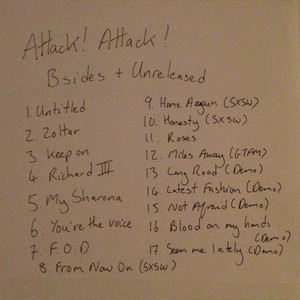 Attack! Attack!
Bsides + Unreleased
1. Untitled
2. Zoltar
3 Keep on
4. Richard III
5. My Sharona
6. You're the voice
7. F.O.D
8. From Now On (SXSW)
9. Home Again (SXSW)
10. Honesty (SXSW)
11. Roses
12. Miles Away (GTFM)
13 Long Road (Demo)
14 Latest Fashion (Demo)
15. Not Afraid (Demo)
16 Blood on my hands
(Demo)
17. Seen me lately (Demo)